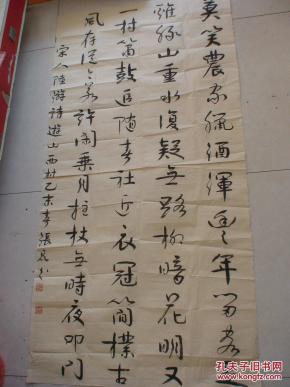 莫笑農家臘酒渾豐年留客足
雞豚山重水復疑無路柳暗花明又
一村簫鼓追隨春社近衣冠簡樸古
風存從今若許閑乘月拄杖無時夜叩門
宋人陸游詩遊山西村乙未春張
孔夫子旧书网